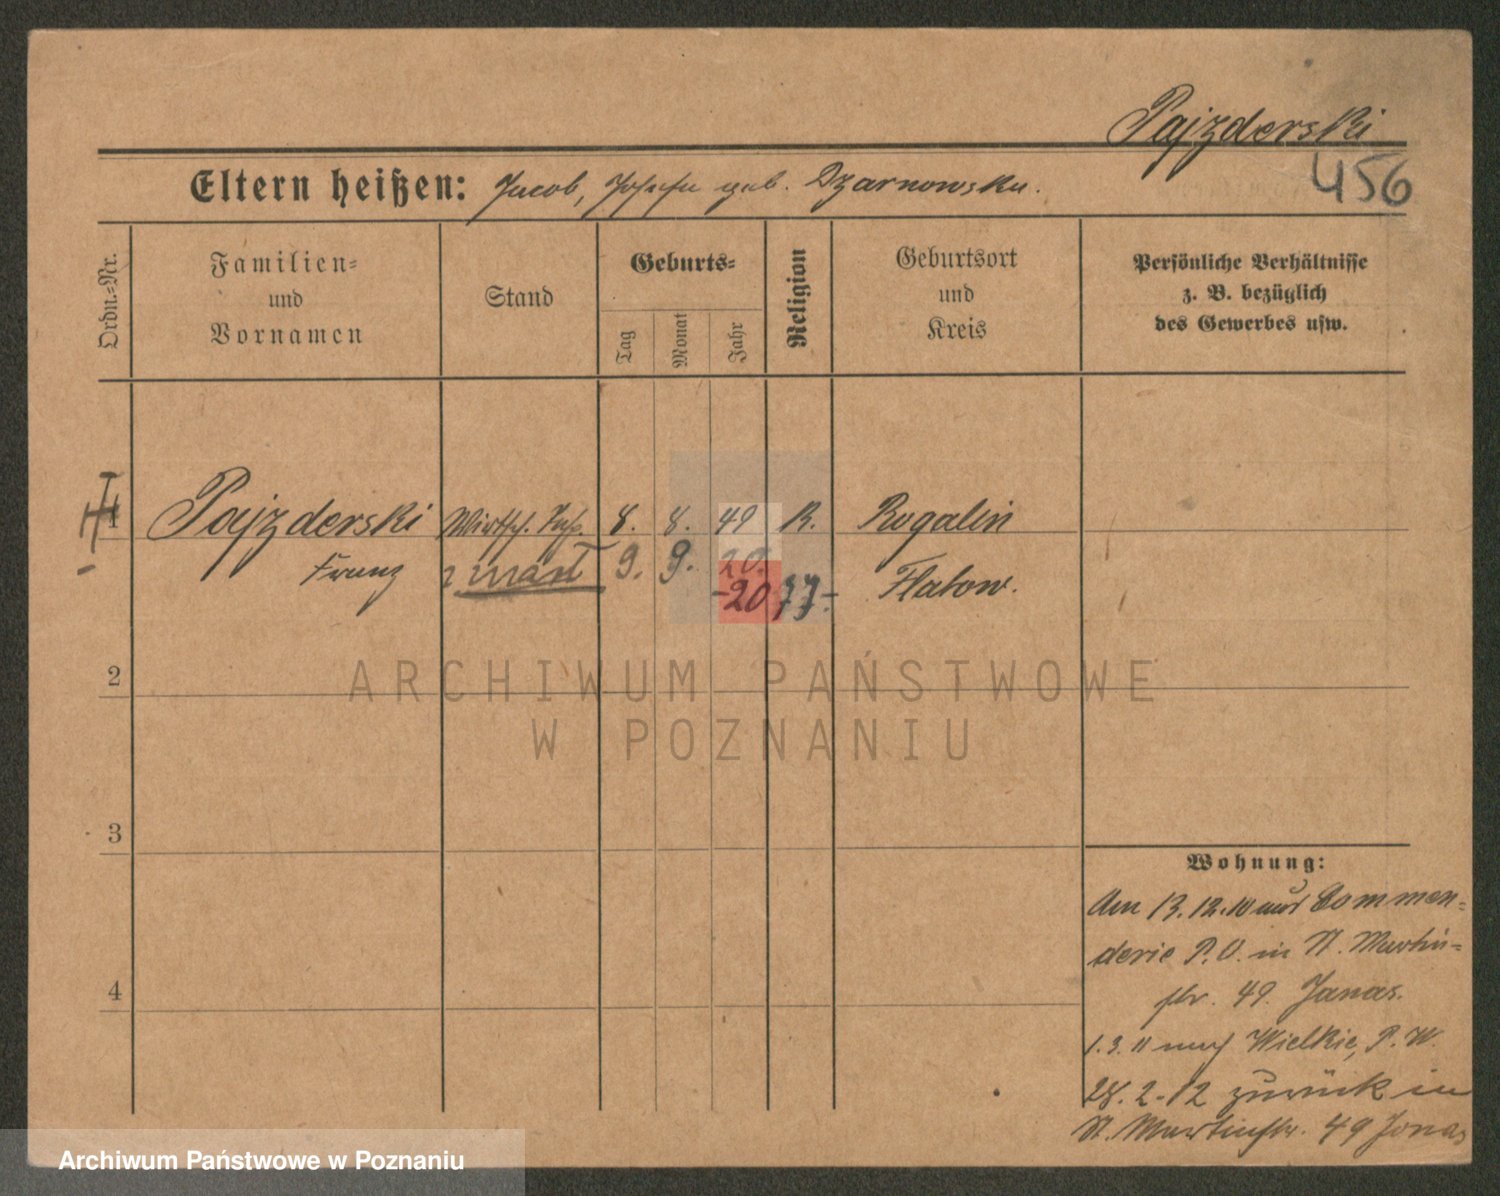 Pajzderski
456
Eltern heißen: Jacob, Josefa geb. Dzarnowska.
Ordn.-Nr.
Familien-
und
Vornamen
Stand
Geburts-
Tag
Monat
Jahr
Religion
Geburtsort
und
Kreis
Persönliche Verhältnisse
z. B. bezüglich
des Gewerbes usw.
1 Pajzderski Wirtsch. Insp. 8. 8. 49 K. Rogalin
Franz zmarł 9. 9. 20. Flatow.
-20 77-
2
ARCHIWUM PAŃSTWOWE
W POZNANIU
3
Wohnung:
Am 13.12.10 aus Commen-
derie P.O. in St. Martin-
str. 49. Jonas.
4
1.3.11 nach Wielkie, P.W.
28.2-12 zurück in
St. Martinstr. 49 Jonas
Archiwum Państwowe w Poznaniu